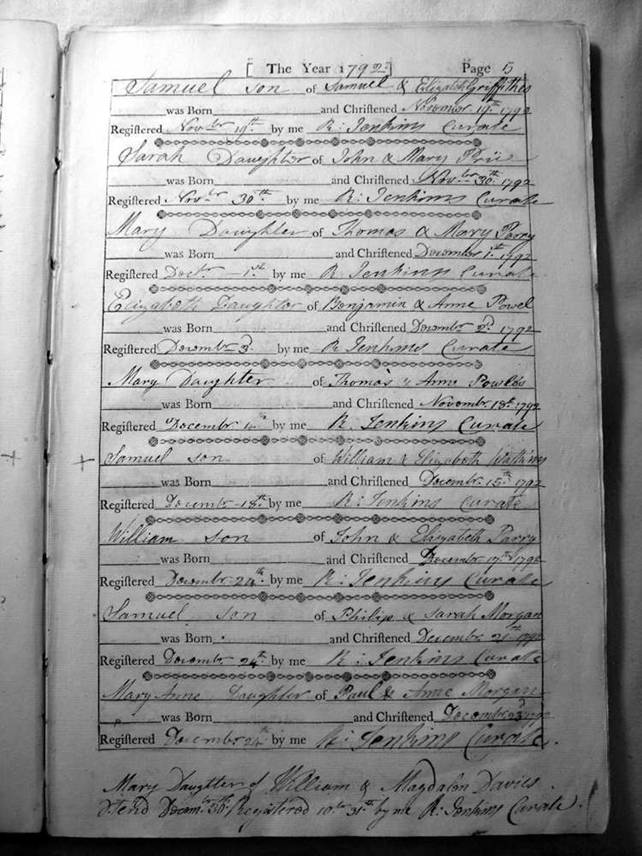 [ The Year 1792 ] Page 5
Samuel Son of Samuel & Elizabeth Griffithes
was Born and Chriſtened Novemor 19th 1792
Regiſtered Novbr 19th by me R: Jenkins Curate
Sarah Daughter of John & Mary
was Born and Chriſtened Novbr 30th 1792
Regiſtered Novbr 30th by me R: Jenkins Curate
Mary Daughter of Thomas & Mary Parry
was Born and Chriſtened December 1st 1792
Regiſtered 1st by me R Jenkins Curate
Elizabeth Daughter of Benjamin & Anne Powel
was Born and Chriſtened Decembr 2d 1792
Regiſtered Decembr 3 by me R Jenkins Curate
Mary Daughter of Thomas & Anne
was Born and Chriſtened Novembr 18th 1792
Regiſtered Decembr by me R. Jenkins Curate
Samuel son of William & Elizabeth Watkins
was Born and Chriſtened Decembr 15th 1792
Regiſtered Decembr 18th by me R: Jenkins Curate
William son of John & Elizabeth Parry
was Born and Chriſtened Decembr 1792
Regiſtered Decembr 24th by me R: Jenkins Curate
Samuel son of Philip & Sarah Morgan
was Born and Chriſtened Decembr 1792
Regiſtered Decembr 24th by me R: Jenkins Curate
Mary Anne Daughter of Paul & Anne Morgan
was Born and Chriſtened Decembr 23 1792
Regiſtered Decembr 24th by me R: Jenkins Curate.
Mary Daughter of William & Magdalen Davies
Decembr 30th Registered 10br 31st by me R. Jenkins Curate.